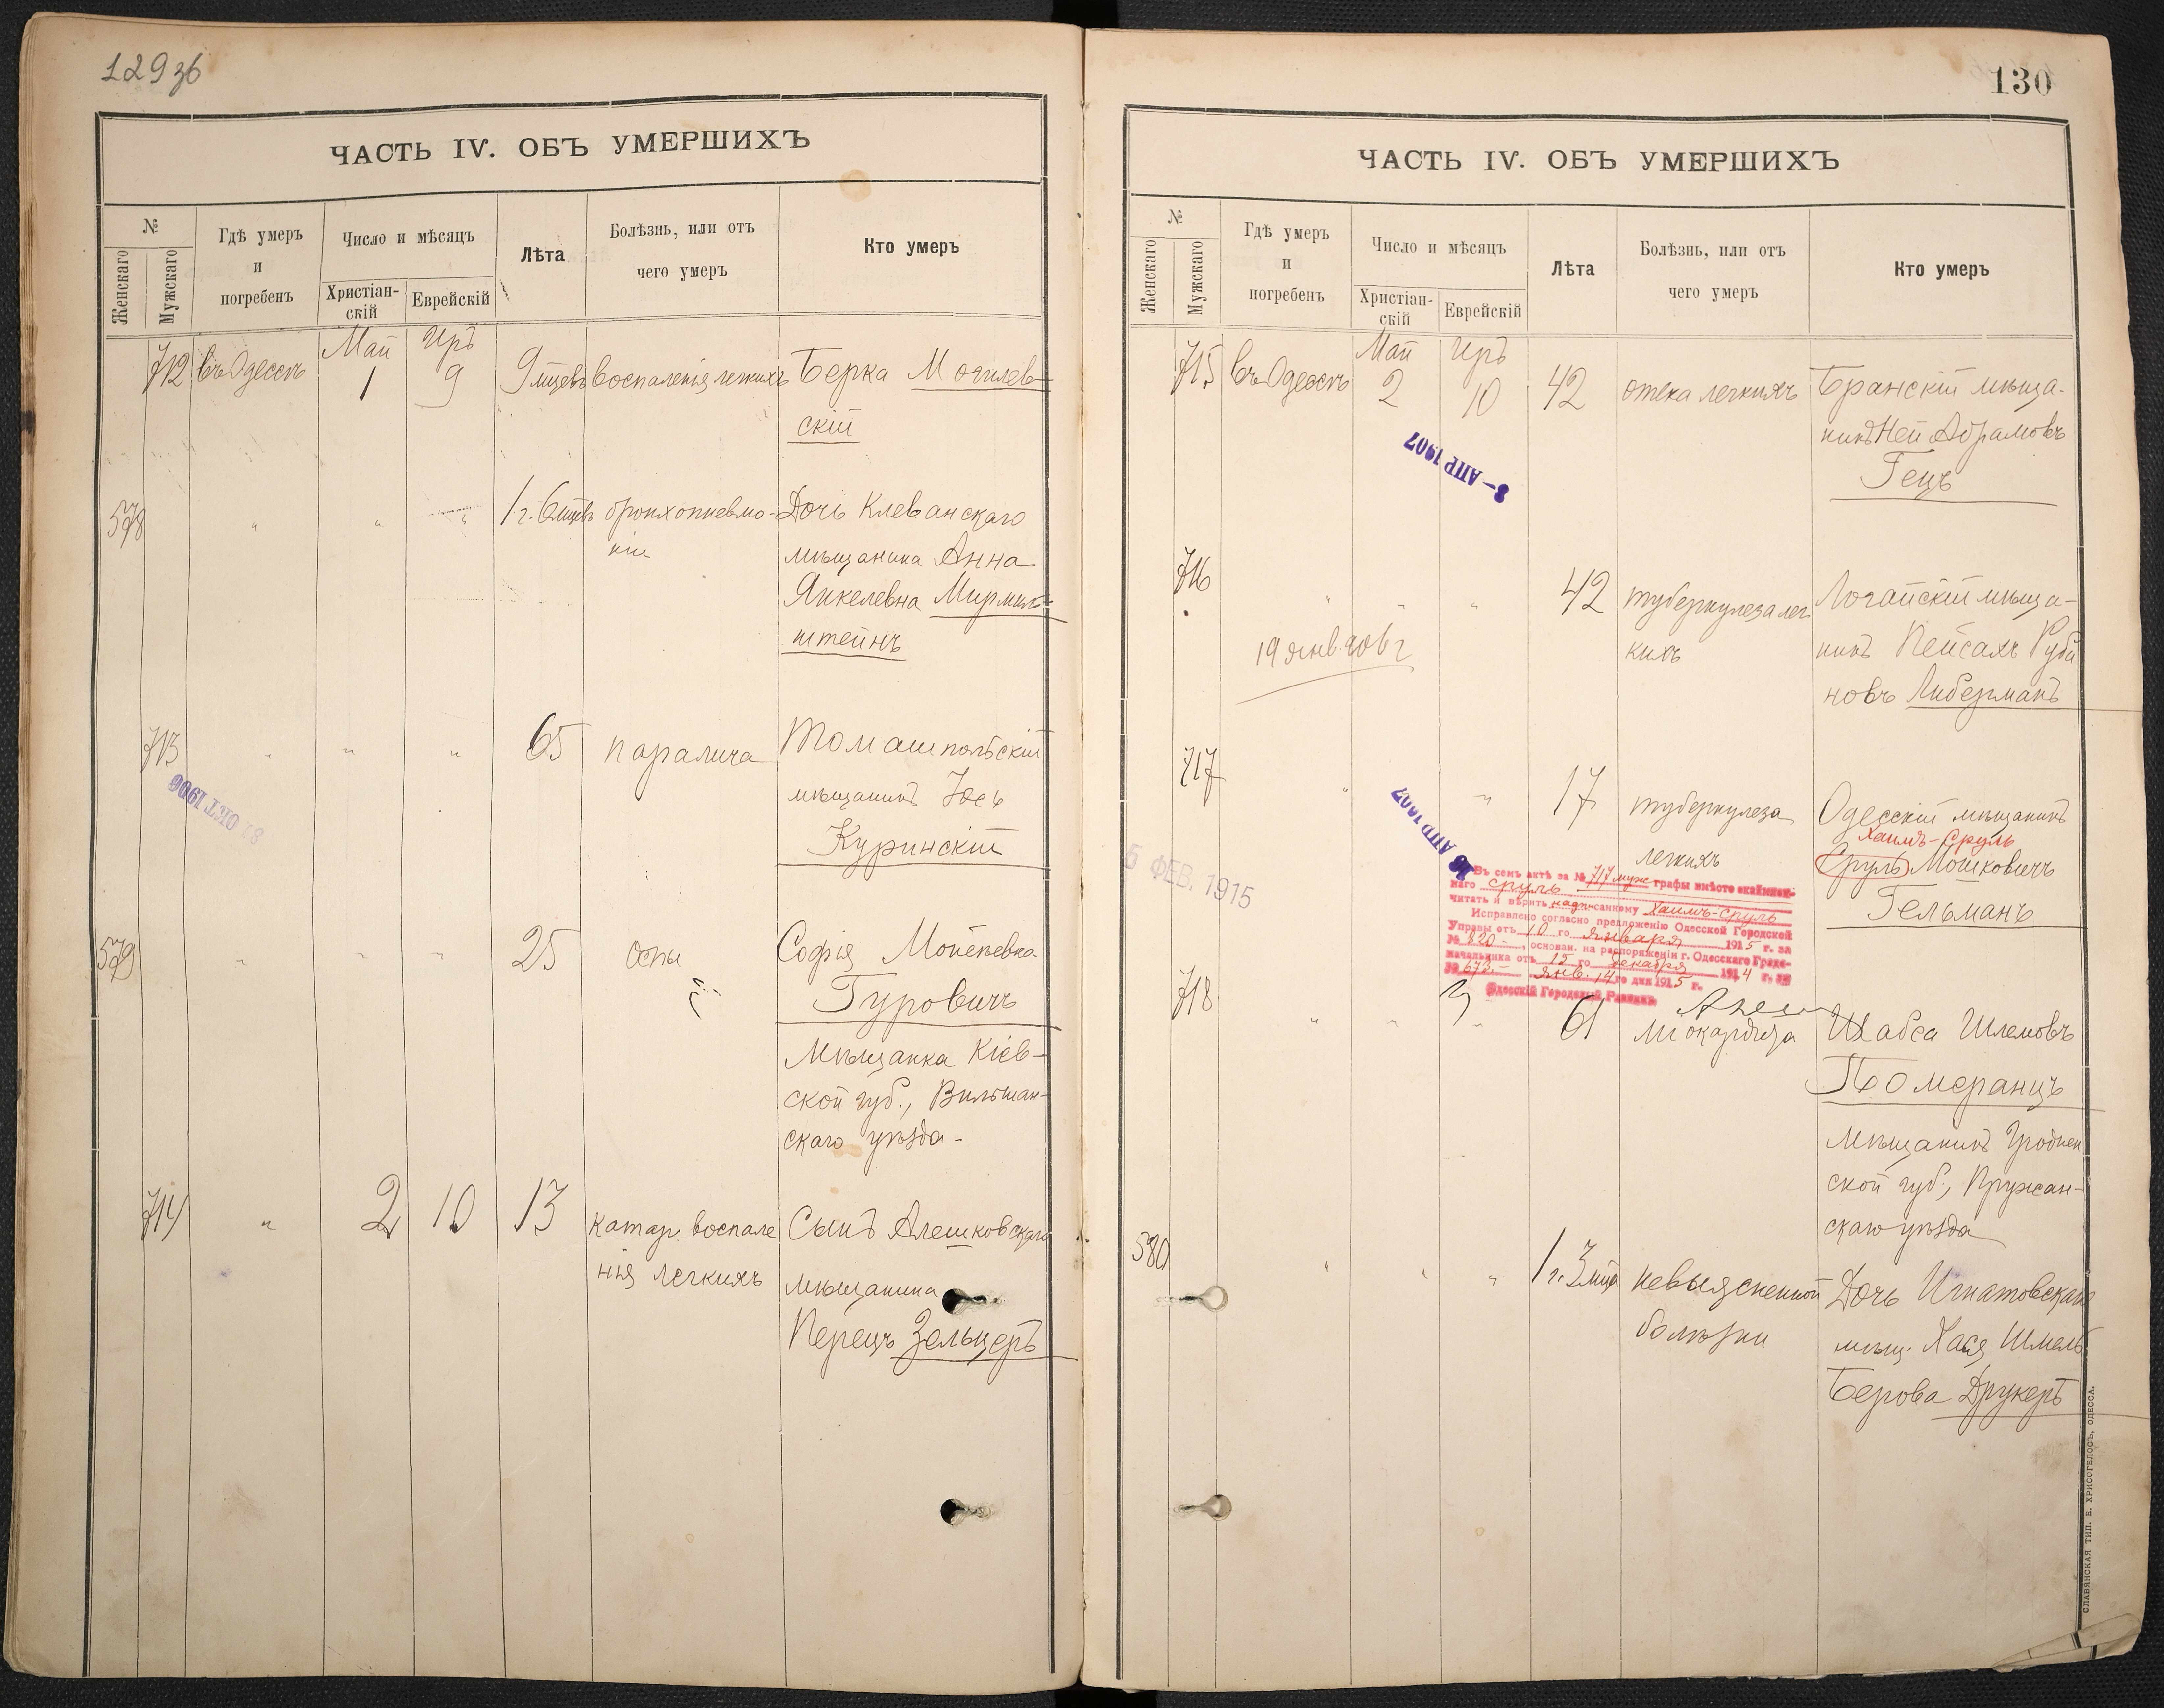 129 зб
ЧАСТЬ IV. ОБЪ УМЕРШИХЪ
№
Женскаго
Мужскаго
Гдѣ умеръ
и
погребенъ
Число и мѣсяцъ
Христіан-
скій
Еврейскій
Лѣта
Болѣзнь, или отъ
чего умеръ
Кто умеръ
Май
Иръ
712 въ Одессѣ 1 9 9 мцевъ воспаленія легкихъ Берка Могилев-
скій
578 " " " 1 г. 6 мцевъ бронхопневмо- Дочь Клеванскаго
ніи мѣщанина Анна
Янкелевна Мирмиль-
штейнъ
713 " " " 65 паралича Томашпольскій
мѣщанинъ Іось
Куринскій
ОКТ 1906
579 " " " 25 оспы Софія Мойсѣевна
Гуровичъ
Мѣщанка Кіев-
ской губ.,
скаго уѣзда -
714 " 2 10 13 катар. воспале Сынъ Алешковскаго
нія легкихъ мѣщанина
Перецъ Зельцеръ
130
ЧАСТЬ IV. ОБЪ УМЕРШИХЪ
№
Женскаго
Мужскаго
Гдѣ умеръ
и
погребенъ
Число и мѣсяцъ
Христіан-
скій
Еврейскій
Лѣта
Болѣзнь, или отъ
чего умеръ
Кто умеръ
Май
Иръ
715 въ Одессѣ 2 10 42 отека легкихъ Бранскій мѣща-
нинъ Абрамовъ
Гецъ
8 - АПР 1907
716 " " " 42 туберкулеза лег- Логайскій мѣща-
кихъ нинъ Пейсахъ Руби
новъ Либерманъ
19 янв. 906 г
717 " " 17 туберкулеза Одесскій мѣщанинъ
Хаимъ-Сруль
легкихъ Сруль Мошковичъ
Гельманъ
АПР 1907
5 ФЕВ. 1915
Въ семъ актѣ за № 717 муж графы вмѣсто окаймлен-
наго Сруль
читать и вѣрить надписанному Хаимъ-Сруль
Исправлено согласно предложенію Одесской Городской
Управы отъ 10 го января 1915 г. за
№ 820 -, основан. на распоряженіи г. Одесскаго Градо-
начальника отъ 15 го декабря 1914 г. за
№ 673. - янв. 14 го дня 1915 г.
Одесскій Городовой Раввинъ
718 " " " 61 міокардиза Шабса Шлемовъ
Померанцъ
Мѣщанинъ Гроднен
ской губ., Пружан-
скаго уѣзда
580 " " " 1 г. 3 мца невыясненной Дочь Игнатовскаго
болѣзни мѣщ. Хася Шмель
Берова Друкеръ
СЛАВЯНСКАЯ ТИП. Е. ХРИСОГЕЛОСЪ, ОДЕССА.